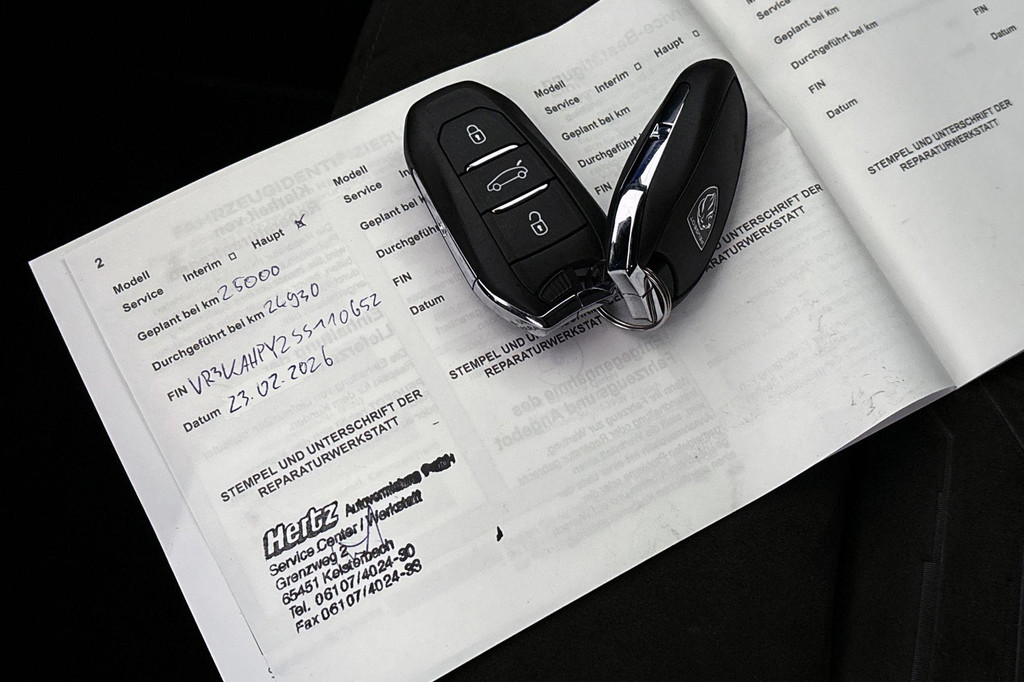 2
Modell
Service Interim Haupt x
Geplant bei km 25000
Durchgeführt bei km 24930
FIN VR3KAHPY2SS110652
Datum 23.02.2026
STEMPEL UND UNTERSCHRIFT DER
REPARATURWERKSTATT
Hertz Autovermietung GmbH
Service Center / Werkstatt
Grenzweg 2
65451 Kelsterbach
Tel. 06107/4024-30
Fax 06107/4024-38
Modell
Service
Geplant bei
Durchgeführt
FIN
Datum
STEMPEL UND
REPARATURWERKSTATT
Modell
Service Interim Haupt
Geplant bei km
Durchgeführt
FIN
UNTERSCHRIFT DER
REPARATURWERKSTATT
Service
Geplant bei km
Durchgeführt bei km
FIN
Datum
STEMPEL UND UNTERSCHRIFT DER
REPARATURWERKSTATT
FIN
Datum